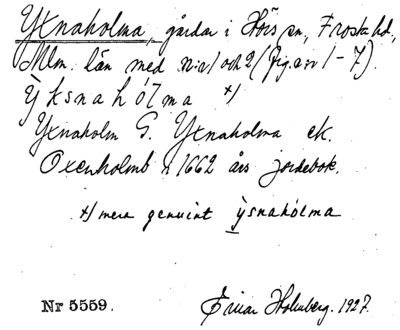 Yxnaholma, gårdar i Hörs sn, Frosta hd,
Mlm. län med nr 1 och 2 (fig. av 1-7).
ỳ k s n a h ó l m a x)
Yxnaholm G. Yxnaholma ek.
Oxenholmb i 1662 års jordebok.
x) mera genuint ỳsnahólma
Nr 5559. Einar Holmberg. 1927.